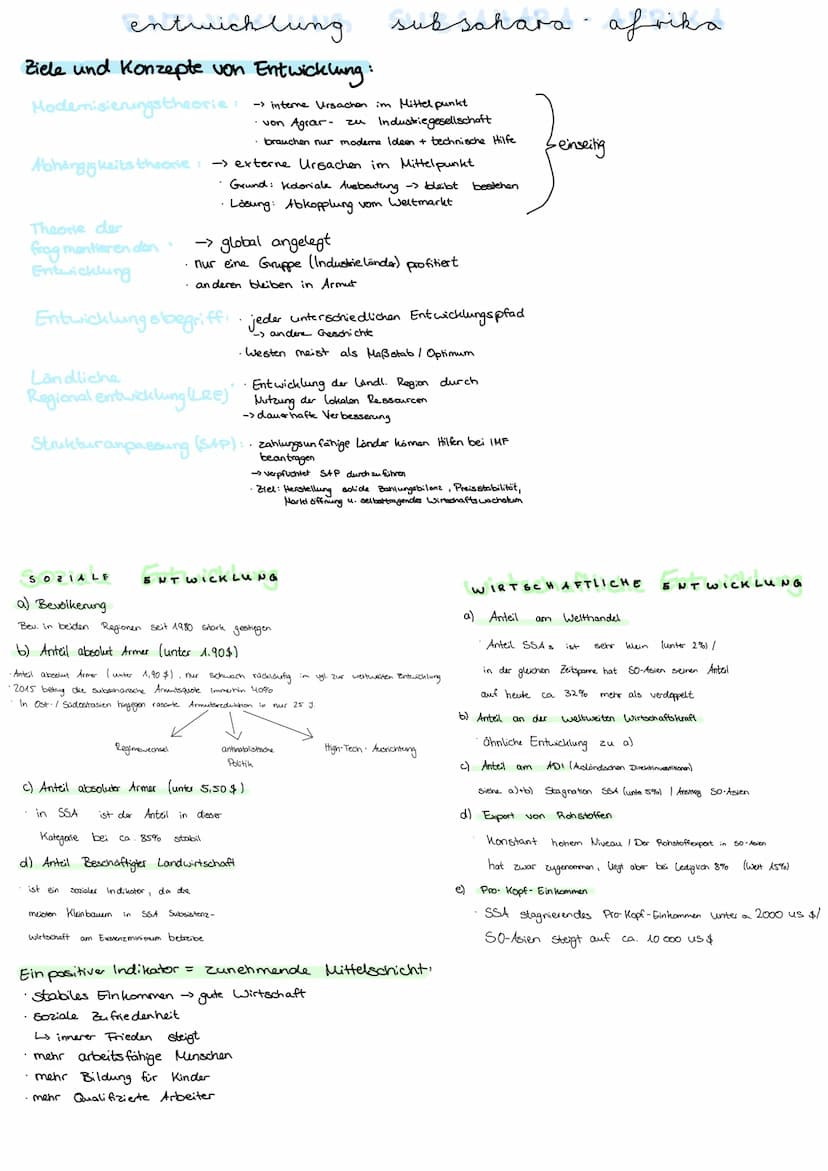 entwicklung subsahara - afrika
Ziele und Konzepte von Entwicklung:
Modernisierungstheorie: → interne Ursachen im Mittelpunkt
· von Agrar- zu Industriegesellschaft
· brauchen nur moderne Ideen + technische Hilfe
einseitig
Abhängigkeitstheorie: → externe Ursachen im Mittelpunkt
· Grund: Koloniale Ausbeutung → bleibt bestehen
· Lösung: Abkopplung vom Weltmarkt
Theorie der
fragmentierenden
Entwicklung
: → global angelegt
· nur eine Gruppe (Industrieländer) profitiert
· anderen bleiben in Armut
Entwicklungsbegriff: · jeder unterschiedlichen Entwicklungspfad
↳ andere Geschichte
· Westen meist als Maßstab / Optimum
Ländliche
Regionalentwicklung (LRE):
· Entwicklung der Ländl. Region durch
Nutzung der lokalen Ressourcen
→ dauerhafte Verbesserung
Strukturanpassung (SAP): · zahlungsunfähige Länder können Hilfen bei IMF
beantragen
→ verpflichtet SAP durchzuführen
· Ziel: Herstellung solide Zahlungsbilanz, Preisstabilität,
Marktöffnung u. selbsttragendes Wirtschaftswachstum
SOZIALE ENTWICKLUNG
a) Bevölkerung
Bev. in beiden Regionen seit 1980 stark gestiegen
b) Anteil absolut Armer (unter 1.90$)
· Anteil absolut Armer (unter 1,90 $), nur schwach rückläufig im vgl. zur weltweiten Entwicklung
· 2015 betrug die subsaharische Armutsquote immerhin 40%
· In Ost- / Südostasien hingegen rasante Armutsreduktion in nur 25 J.
Regimewechsel
Politik
High-Tech-Ausrichtung
c) Anteil absoluter Armer (unter 5,50 $)
· in SSA ist der Anteil in dieser
Kategorie bei ca. 85% stabil
d) Anteil Beschäftigter Landwirtschaft
· ist ein sozialer Indikator, da die
meisten Kleinbauern in SSA Subsistenz-
wirtschaft am Existenzminimum betreibe
Ein positiver Indikator = zunehmende Mittelschicht:
· stabiles Einkommen → gute Wirtschaft
· soziale Zufriedenheit
↳ innerer Frieden steigt
· mehr arbeitsfähige Menschen
· mehr Bildung für Kinder
· mehr Qualifizierte Arbeiter
WIRTSCHAFTLICHE ENTWICKLUNG
a) Anteil am Welthandel
· Anteil SSAs ist sehr klein (unter 2%) /
in der gleichen Zeitspanne hat SO-Asien seinen Anteil
auf heute ca 32% mehr als verdoppelt
b) Anteil an der weltweiten Wirtschaftskraft
· Ähnliche Entwicklung zu a)
c) Anteil am ADI (Ausländischen Direktinvestitionen)
siehe a)+b) Stagnation SSA (unter 5%) / Anstieg SO-Asien
d) Export von Rohstoffen
Konstant hohem Niveau / Der Rohstoffexport in SO-Asien
hat zwar zugenommen, liegt aber bei lediglich 8% (Welt 15%)
e) Pro-Kopf-Einkommen
· SSA stagnierendes Pro-Kopf-Einkommen unter 2000 US $/
SO-Asien steigt auf ca. 10 000 US $